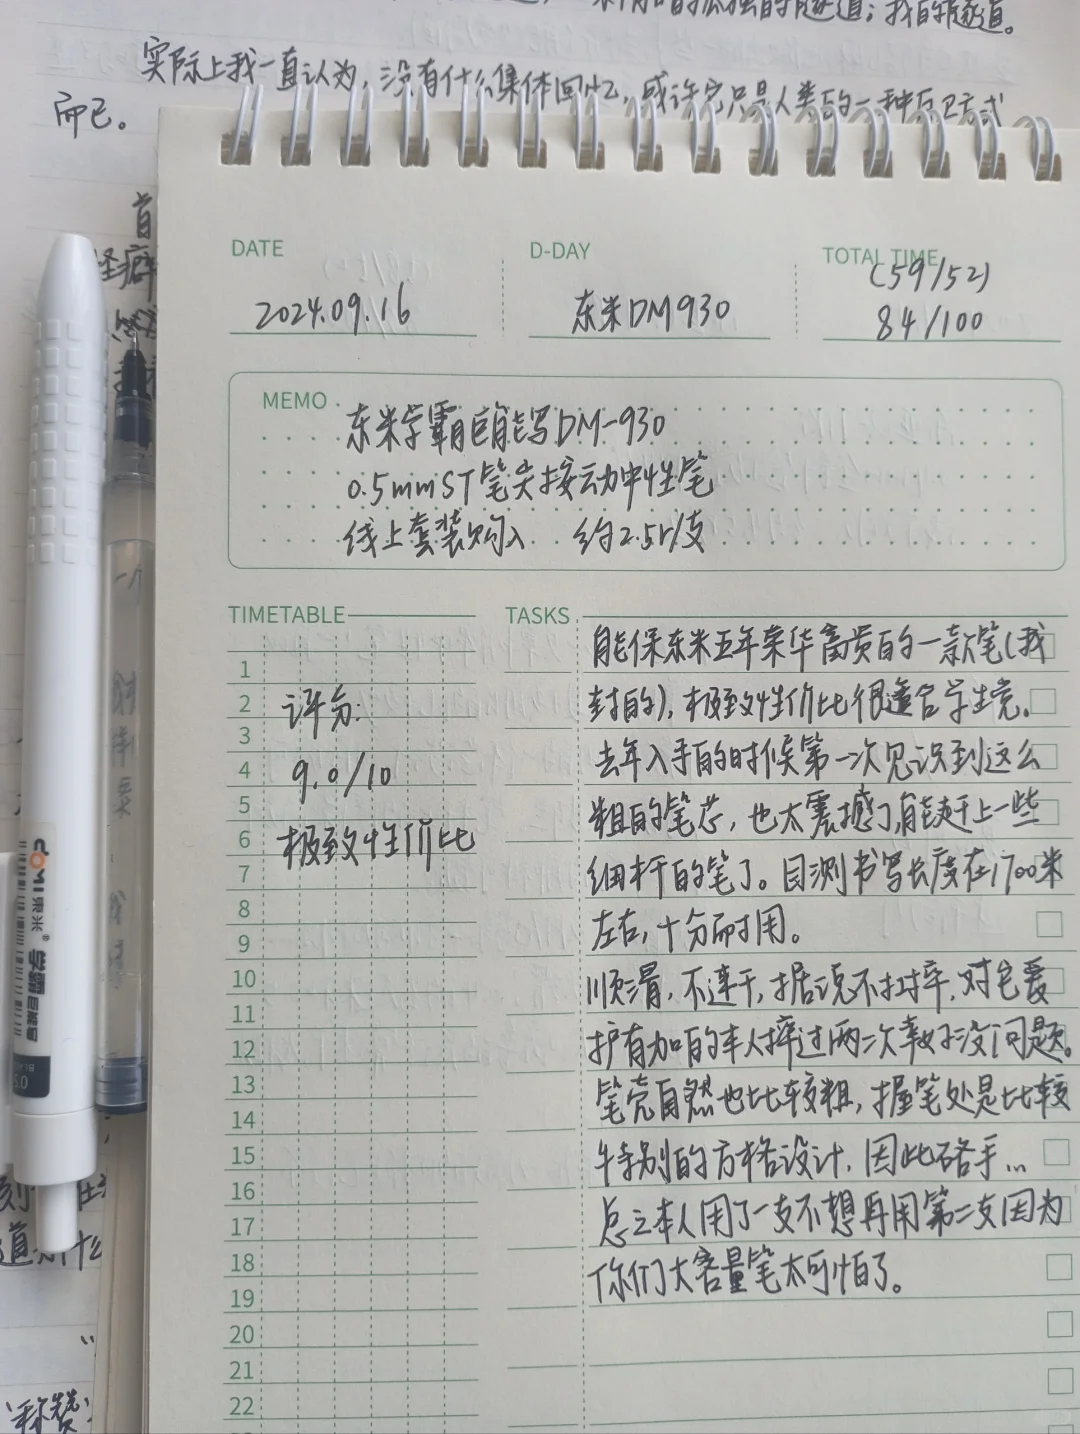 的隧道；我的隧道。
实际上我一直认为，没有什么集体回忆，或许它只是人类的一种方式
而已。
首
怪癖
DATE
D-DAY
TOTAL TIME
(59/52)
2024.09.16
东米DM930
84/100
MEMO
东米学霸巨能写DM-930
0.5mmST笔尖按动中性笔
线上套装购入 约2.5r/支
TIMETABLE
TASKS
1
2
3
4
5
6
7
8
9
10
11
12
13
14
15
16
17
18
19
20
21
22
评分：
9.0/10
极致性价比
能保东米五年荣华富贵的一款笔（我
封的），极致性价比很适合学生党。
去年入手的时候第一次见识到这么
粗的笔芯，也太震撼了，能赶上一些
细杆的笔了。目测书写长度在1700米
左右，十分耐用。
顺滑，不连干，据说不抗摔，对它爱
护有加的本人摔过两次幸好没问题。
笔壳自然也比较粗，握笔处是比较
特别的方格设计，因此硌手…
总之本人用了一支不想再用第二支因为
你们大容量笔太可怕了。
DOMI东米®
学霸
巨能写
0.5
BLACK
道
称赞